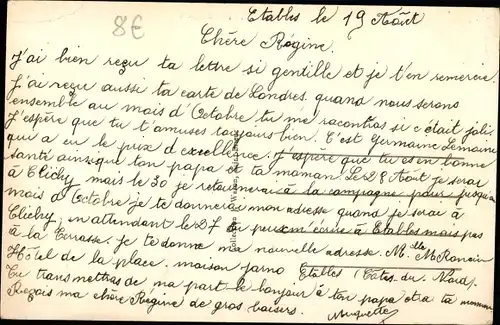 8€
Etables le 19 Août
Chère Régine.
J'ai bien reçu ta lettre si gentille et je t'en remercie.
J'ai reçu aussi ta carte de Londres. quand nous serons
ensemble au mois d'Octobre tu me racontras si c'était joli
J'espère que tu t'amuses toujours bien. C'est Germaine Lemaine
qui a eu le prix d'excellence. J'espère que tu es en bonne
santé ainsi que ton papa et ta maman. Le 28 Août je serai
à Clichy mais le 30 je retournerai à la campagne pour jusqu'au
mois d'Octobre je te donnerai mon adresse quand je serai à
Clichy, en attendant le 27 tu peux m'écrire à Etables mais pas
à la Terrasse. je te donne ma nouvelle adresse. Mlle M.
Hôtel de la place. maison Etables (Côtes du Nord)
Tu transmettras de ma part le bonjour à ton papa et à ta maman
Reçois ma chère Régine de gros baisers.
Huguette